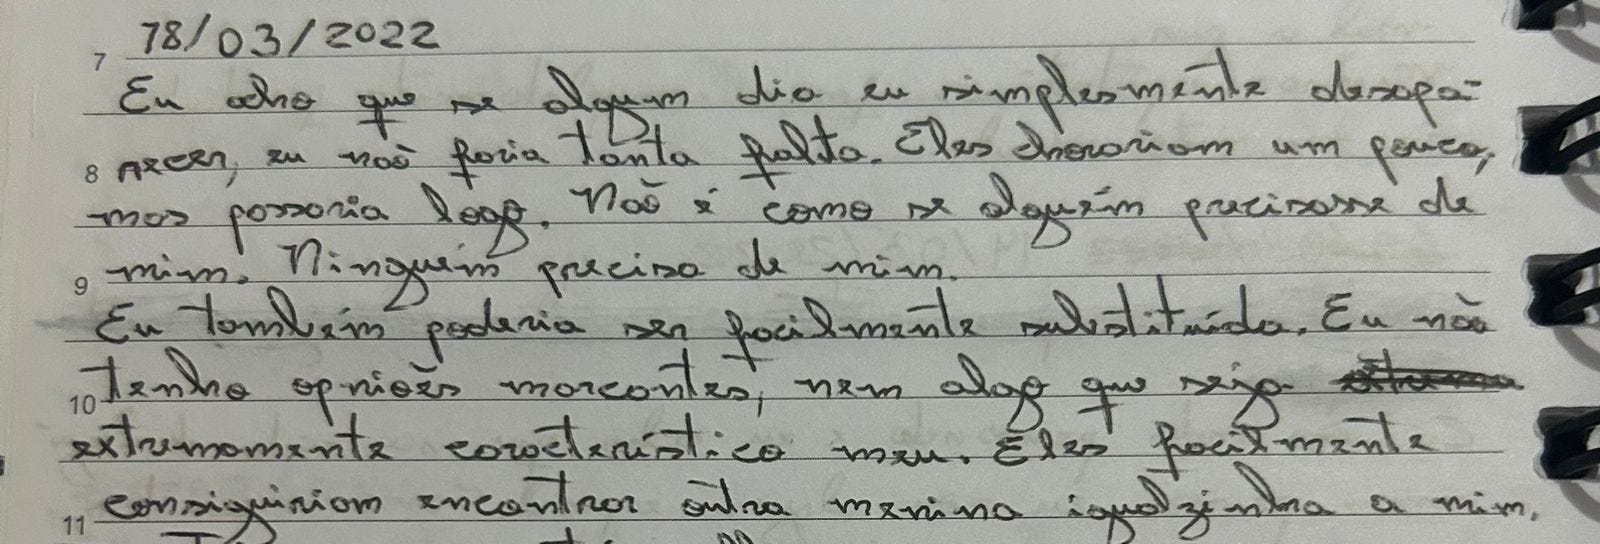 18/03/2022
7
Eu acho que se algum dia eu simplesmente desapa-
8 recer, eu não faria tanta falta. Eles chorariam um pouco,
mas passaria logo. Não é como se alguém precisasse de
9 mim. Ninguém precisa de mim.
Eu também poderia ser facilmente substituída. Eu não
10 tenho opniões marcantes, nem algo que seja
extremamente característico meu. Eles facilmente
11 consiguiriam encontrar outra menina igualzinha a mim.